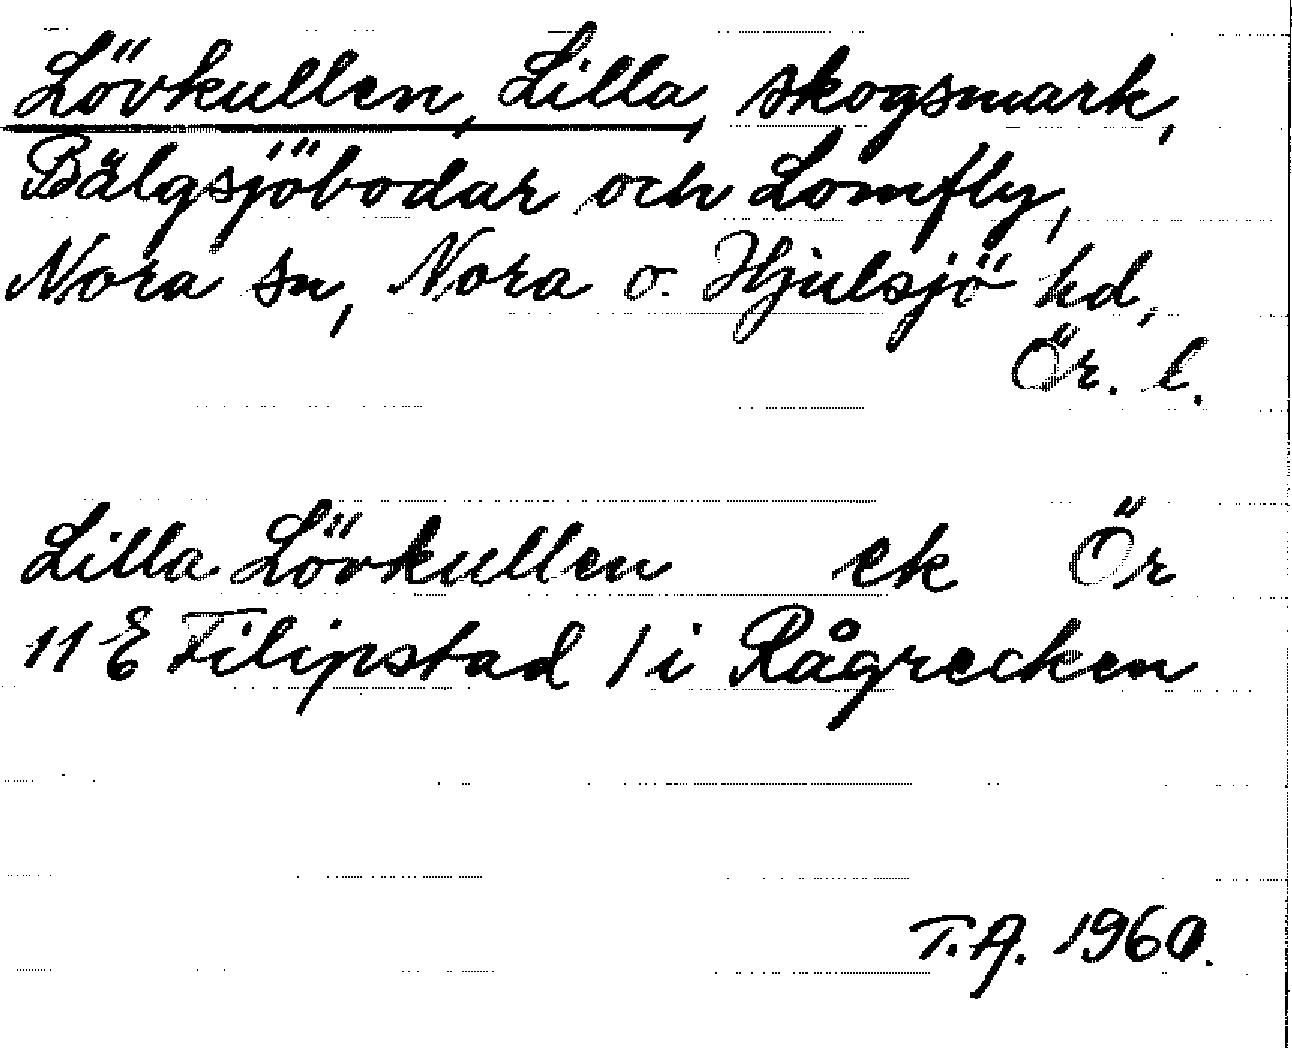 Lövkullen, Lilla, skogsmark,
Bälgsjöbodar och Lomfly,
Nora sn, Nora o. Hjulsjö hd,
Ör. l.
Lilla Lövkullen ek Ör
11 E Filipstad 1 i Rågrecken
T.A. 1960.